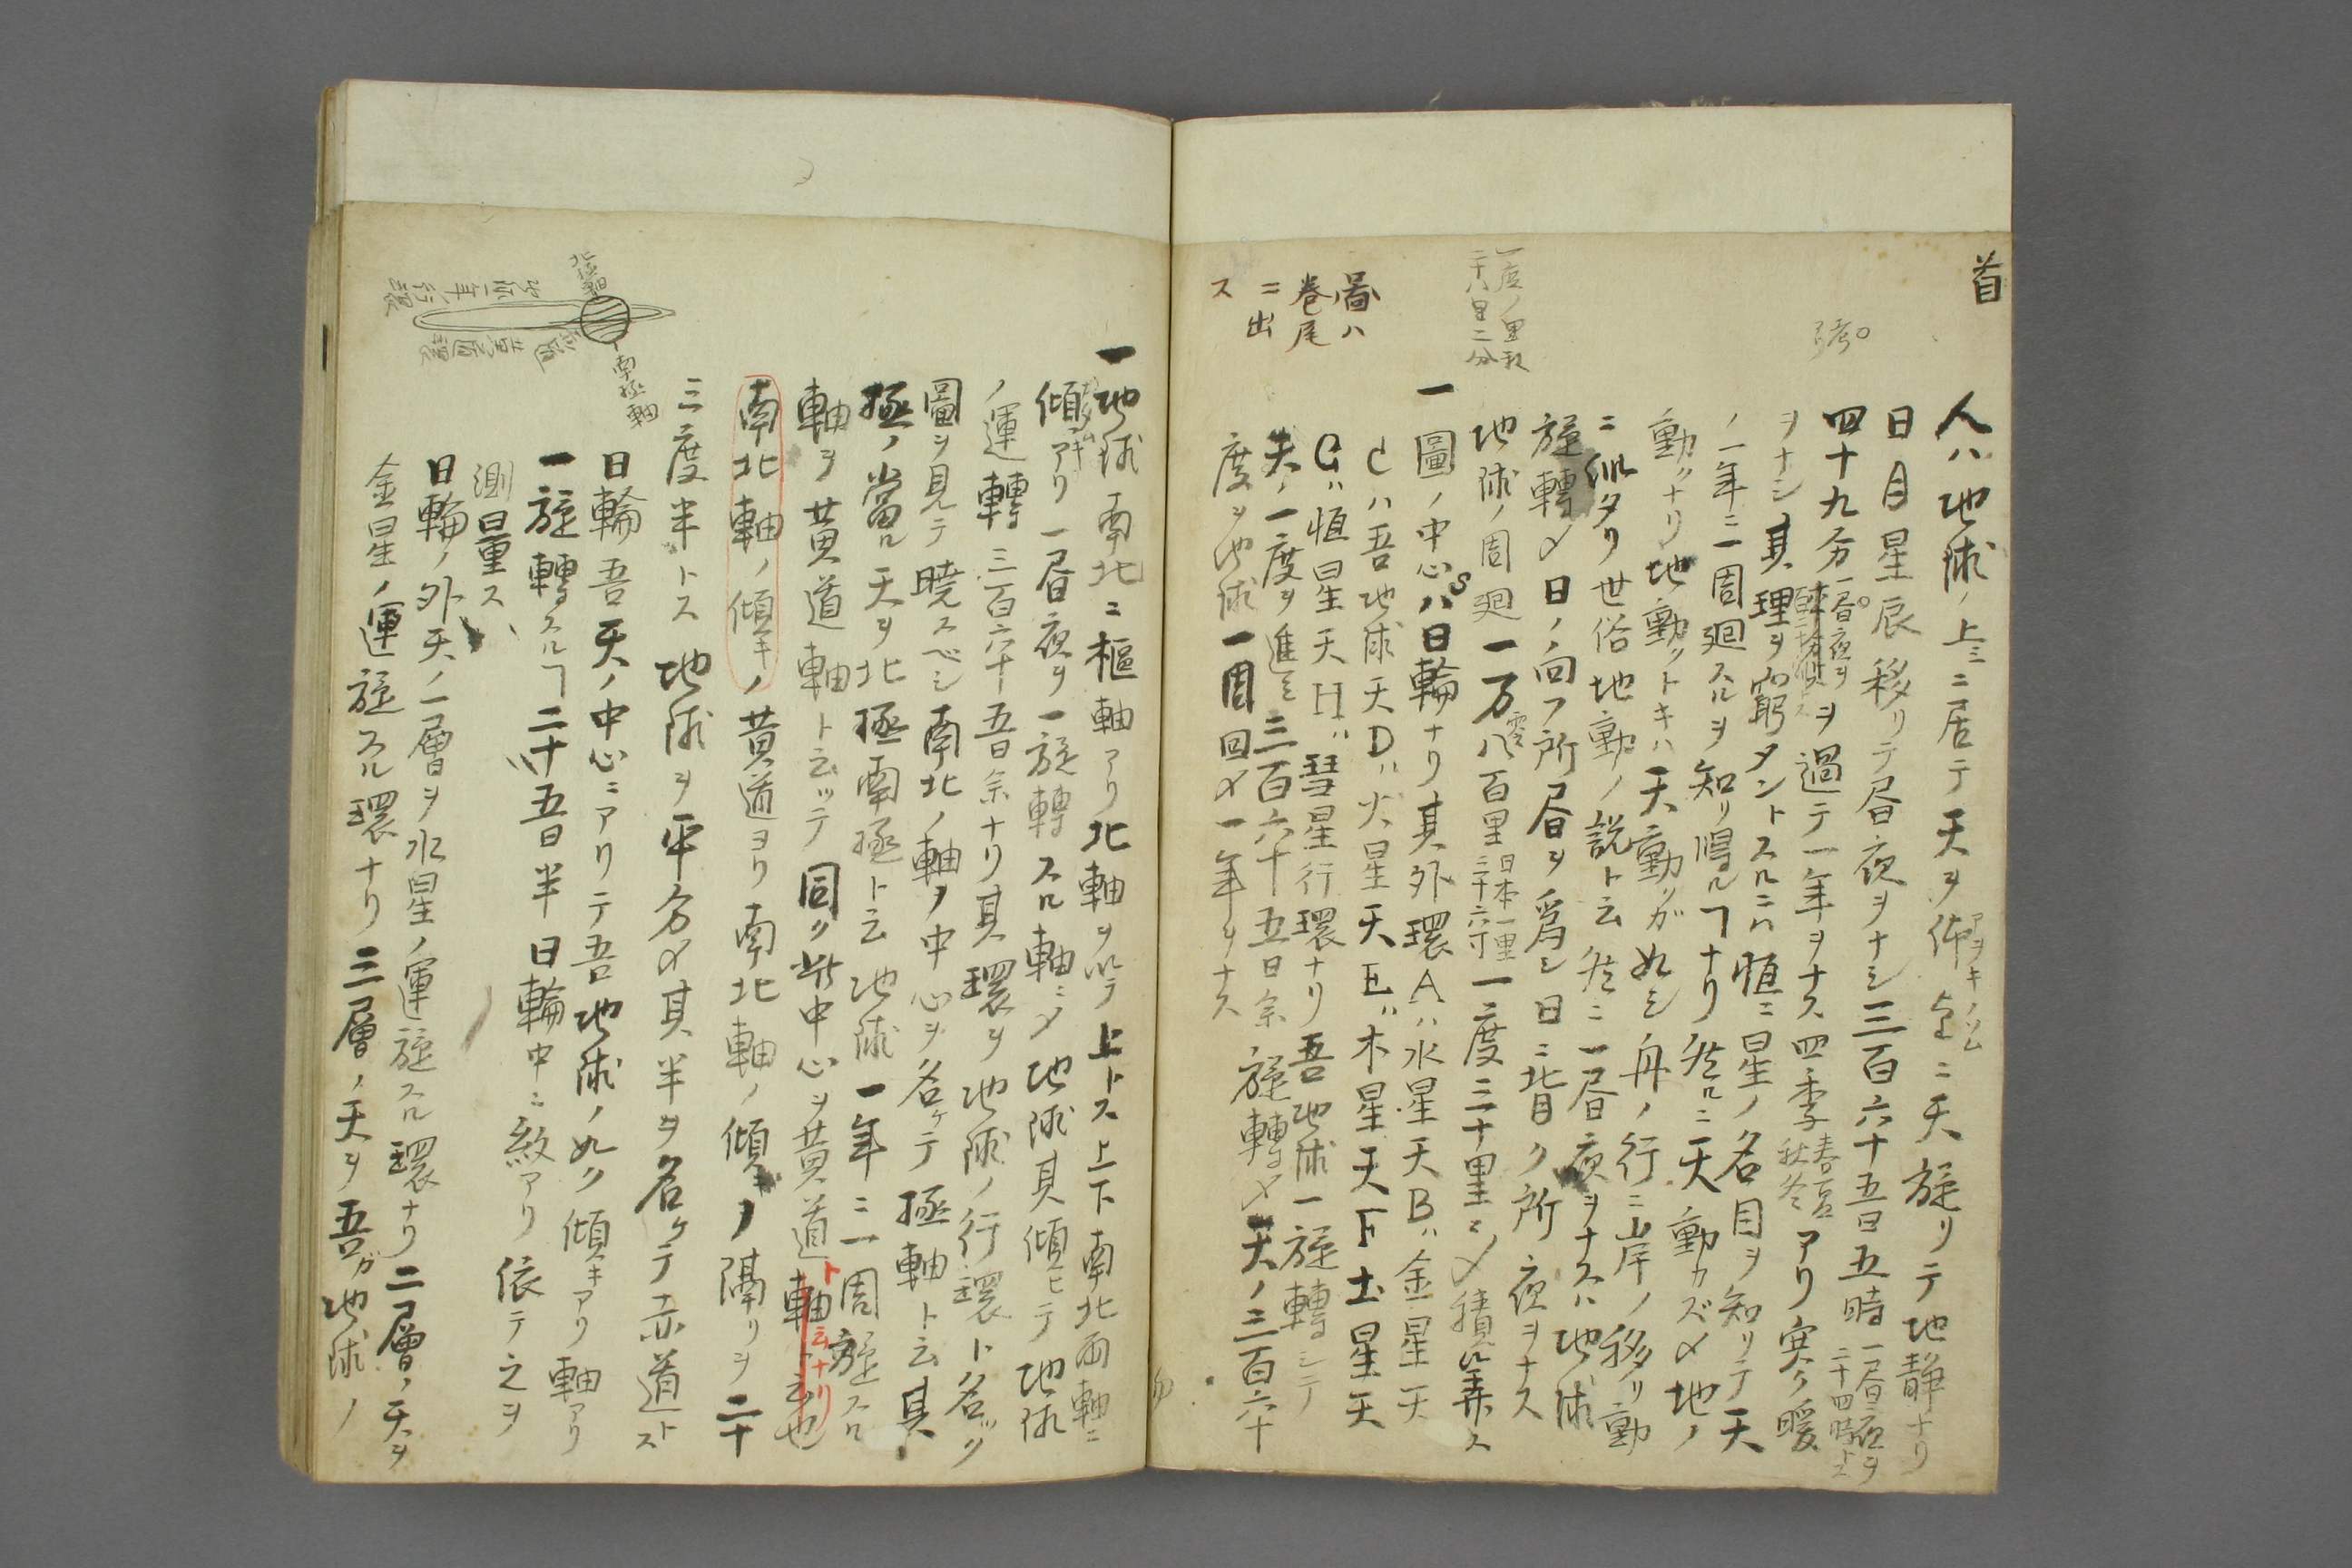 首
人ハ地球ノ上ミニ居テ天ヲ仰全ニ天旋リテ地静ナリ
日月星辰移リテ昼夜ヲナシ三百六十五日五時一昼夜ヲ二十四時トス
四十九分一昼夜ヲヲ過テ一年ヲナス四季春夏秋冬アリ寒ク暖
ヲナシ其理ヲ窮タントスルニハ恒ニ星ノ名目ヲ知リテ天
ノ一年ニ一周廻スルヲ知リ得ルヿナリ然ルニ天動カズ〆地ノ
動クナリ地動クトキハ天動クガ如シ舟ノ行ニ山岸ノ移リ動
ニ似タリ世俗地動ノ説ト云然ニ一昼夜ヲナスハ地球
旋轉〆日ノ向フ所昼ヲ為シ日ニ背ク所夜ヲナス
一度ノ里数
二十八里二分
地球ノ周廻一万零八百里日本一里三十六町一度三十里ニ〆積ル算ス
圖ハ
巻尾
ニ出
ス
一圖ノ中心Sハ日輪ナリ其外環Aハ水星天Bハ金星天
Cハ吾地球天Dハ火星天Eハ木星天F土星天
Gハ恒星天Hハ彗星行環ナリ吾地球一旋轉シテ
天ノ一度ヲ進ミ三百六十五日余旋轉〆天ノ三百六十
度ヲ地球一周回〆一年ヲナス
一地球南北ニ樞軸アリ北軸ヲ以テ上トス上下南北両軸ニ
傾アリ一昼夜ヲ一旋轉スル軸ニ〆地球其傾ヒテ地球
ノ運轉三百六十五日余ナリ其環ヲ地球ノ行環ト名ツク
圖ヲ見テ暁スベシ南北ノ軸ノ中心ヲ名ケテ極軸ト云其
極ノ當ル天ヲ北極南極ト云地球一年ニ一周旋スル
軸ヲ黄道軸ト云ッテ同ク此中心ヲ黄道軸ト云也
ト云ナリ
南北軸ノ傾キノ黄道ヨリ南北軸ノ傾キノ隔リヲ二十
三度半トス地球ヲ平分〆其半ヲ名ケテ赤道トス
北極軸
南極軸
日輪吾天ノ中心ニアリテ吾地球ノ如ク傾キアリ軸アリ
一旋轉スルヿ二十五日半日輪中ニ紋アリ依テ之ヲ
測量ス
日輪ノ外天ノ一層ヲ水星ノ運旋スル環ナリ二層ノ天ヲ
金星ノ運旋スル環ナリ三層ノ天ヲ吾ガ地球ノ